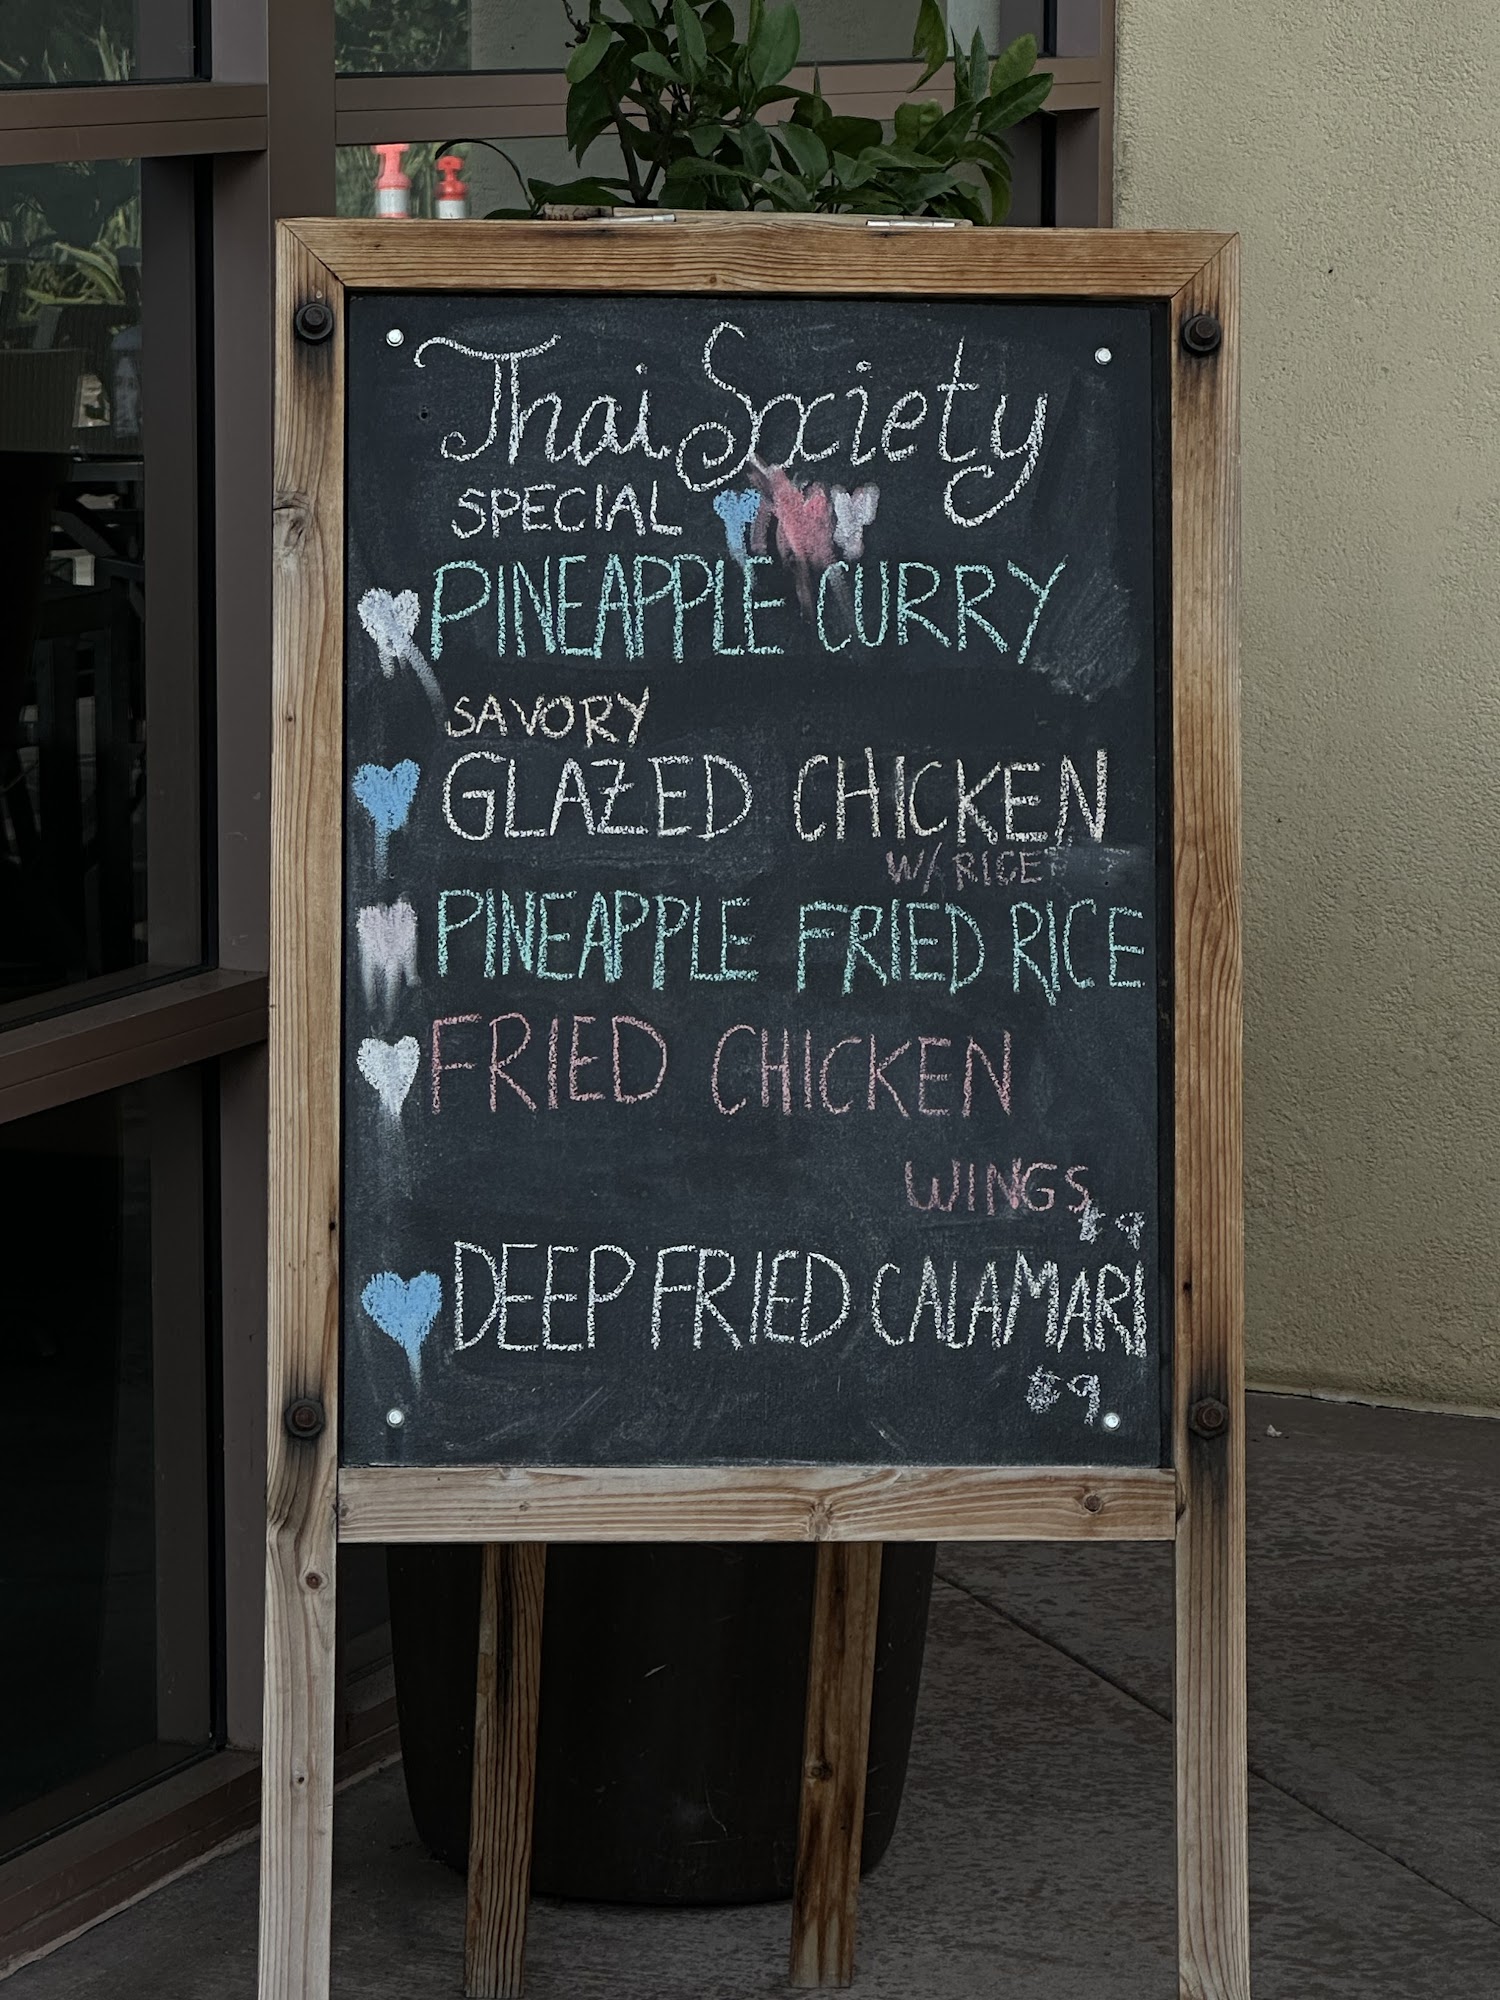 Thai Society
SPECIAL
PINEAPPLE CURRY
SAVORY
GLAZED CHICKEN
W/ RICE
PINEAPPLE FRIED RICE
FRIED CHICKEN
WINGS
$9
DEEP FRIED CALAMARI
$9